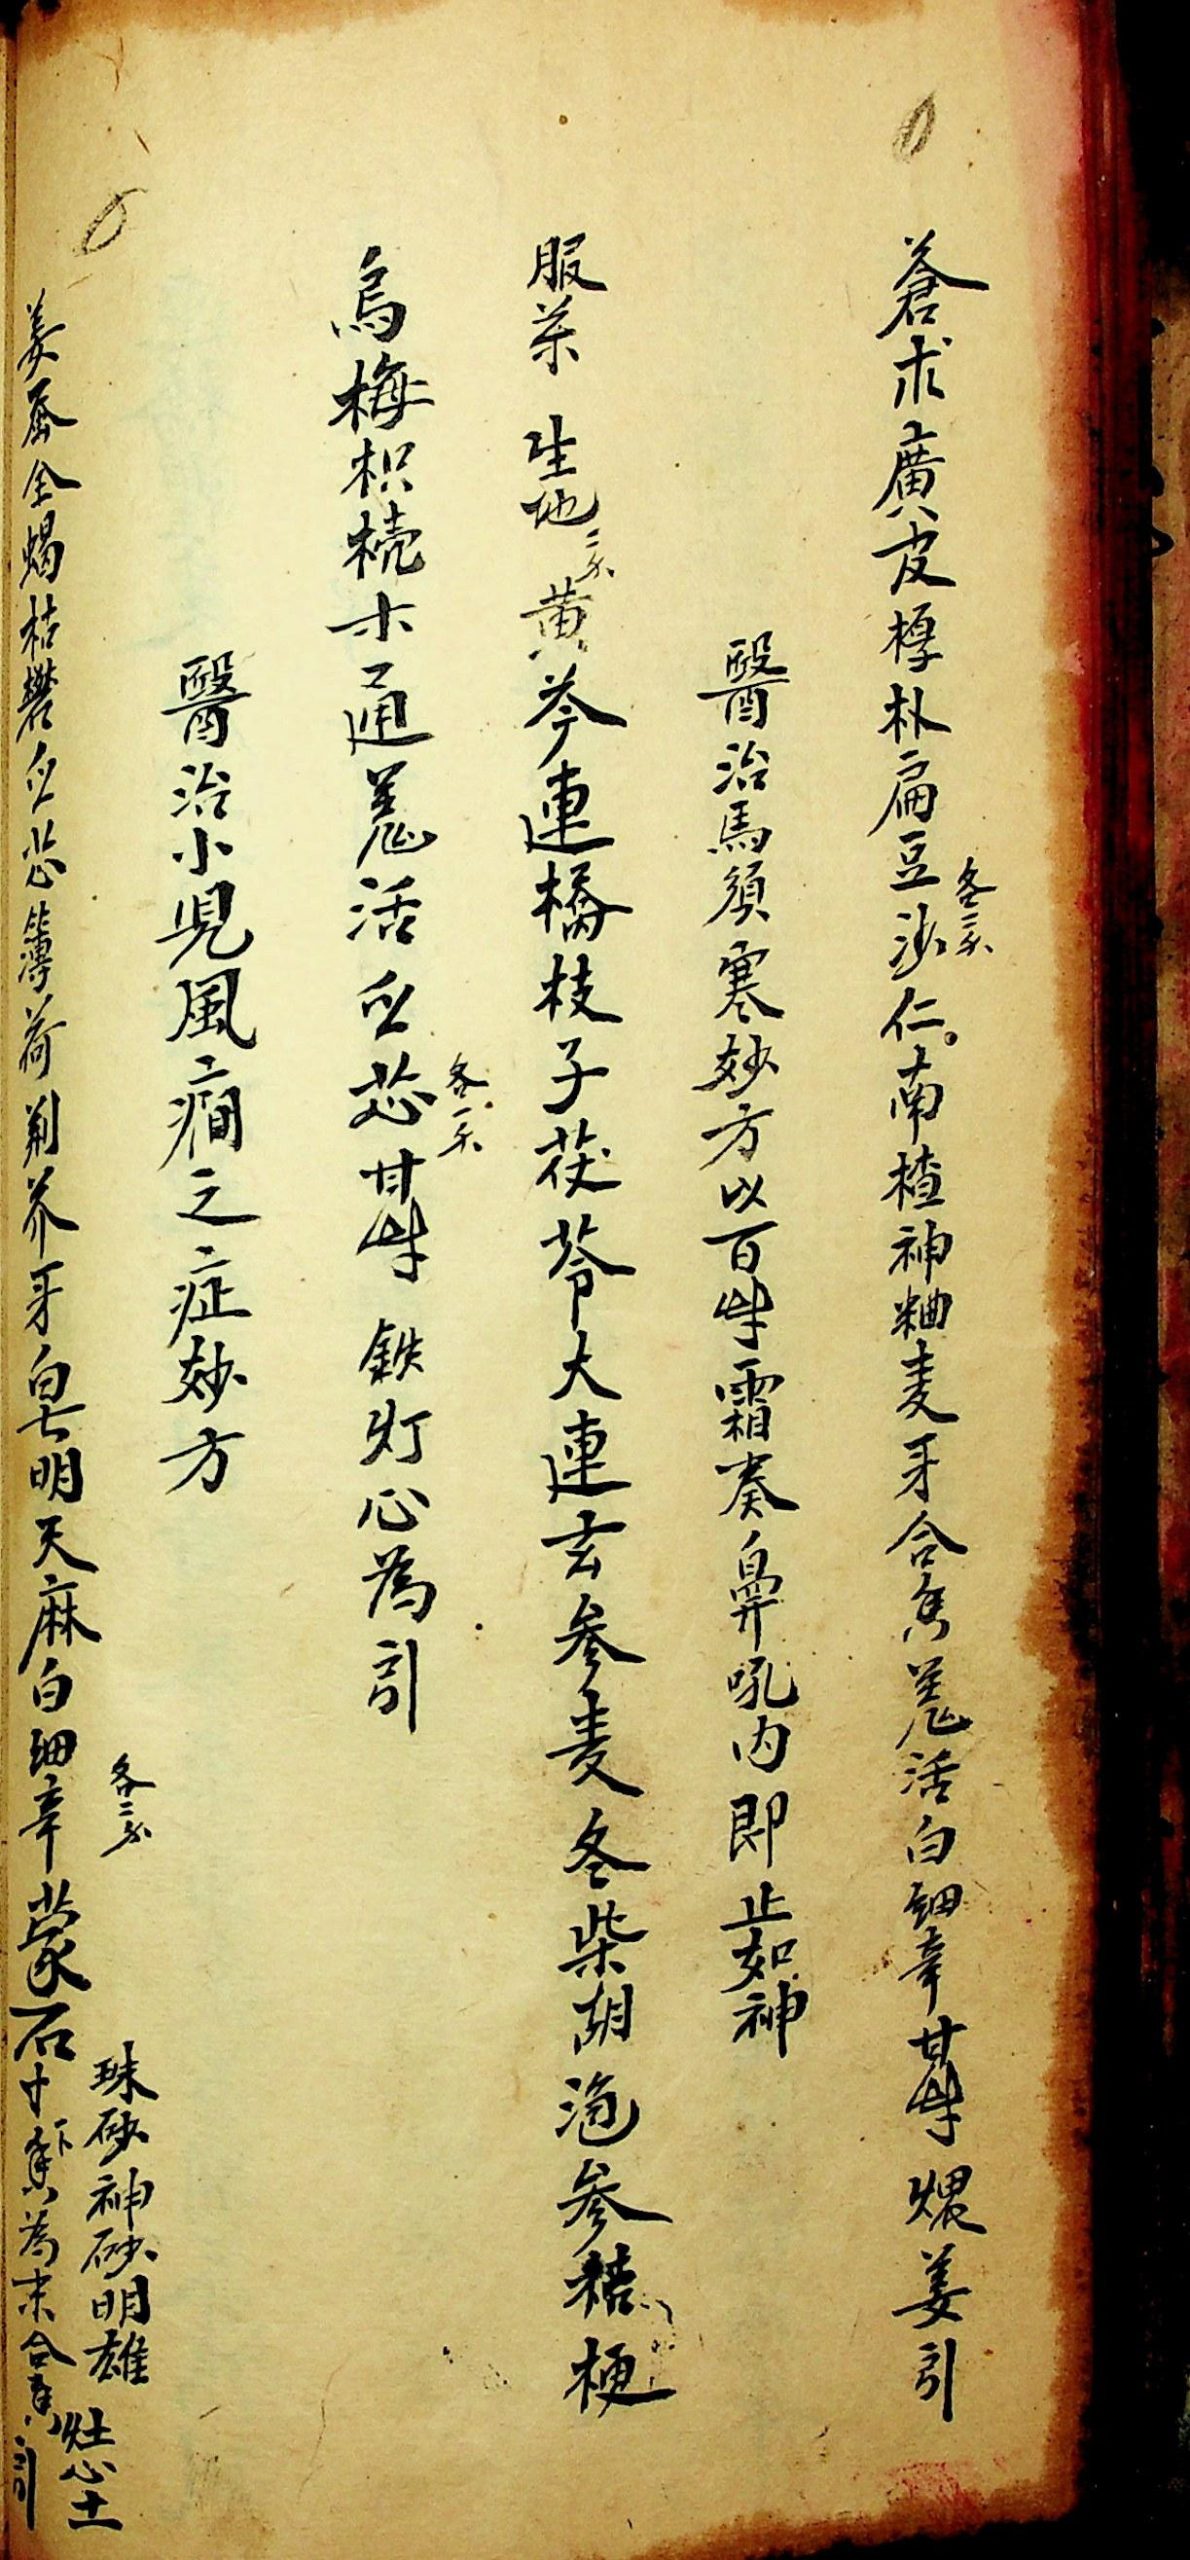 蒼朮廣皮椁朴扁豆沙仁各二分南楂神粬麦牙合香羗活白細辛甘草煨姜引
醫治馬須寒妙方以百草霜奏鼻吼内即止如神
服茶 生地二分黄芩連橋枝子茯苓大連玄参麦冬柴胡泡参桔梗
烏梅枳壳木通羗活只芯各一分甘草 鉄灯心為引
醫治小児風癎之症妙方
姜蚕全蝎枯礬只芯簿荷荆芥牙皂七明天麻白細辛各二分蒙石寸香為末合香引
珠砂神砂明雄 灶心土